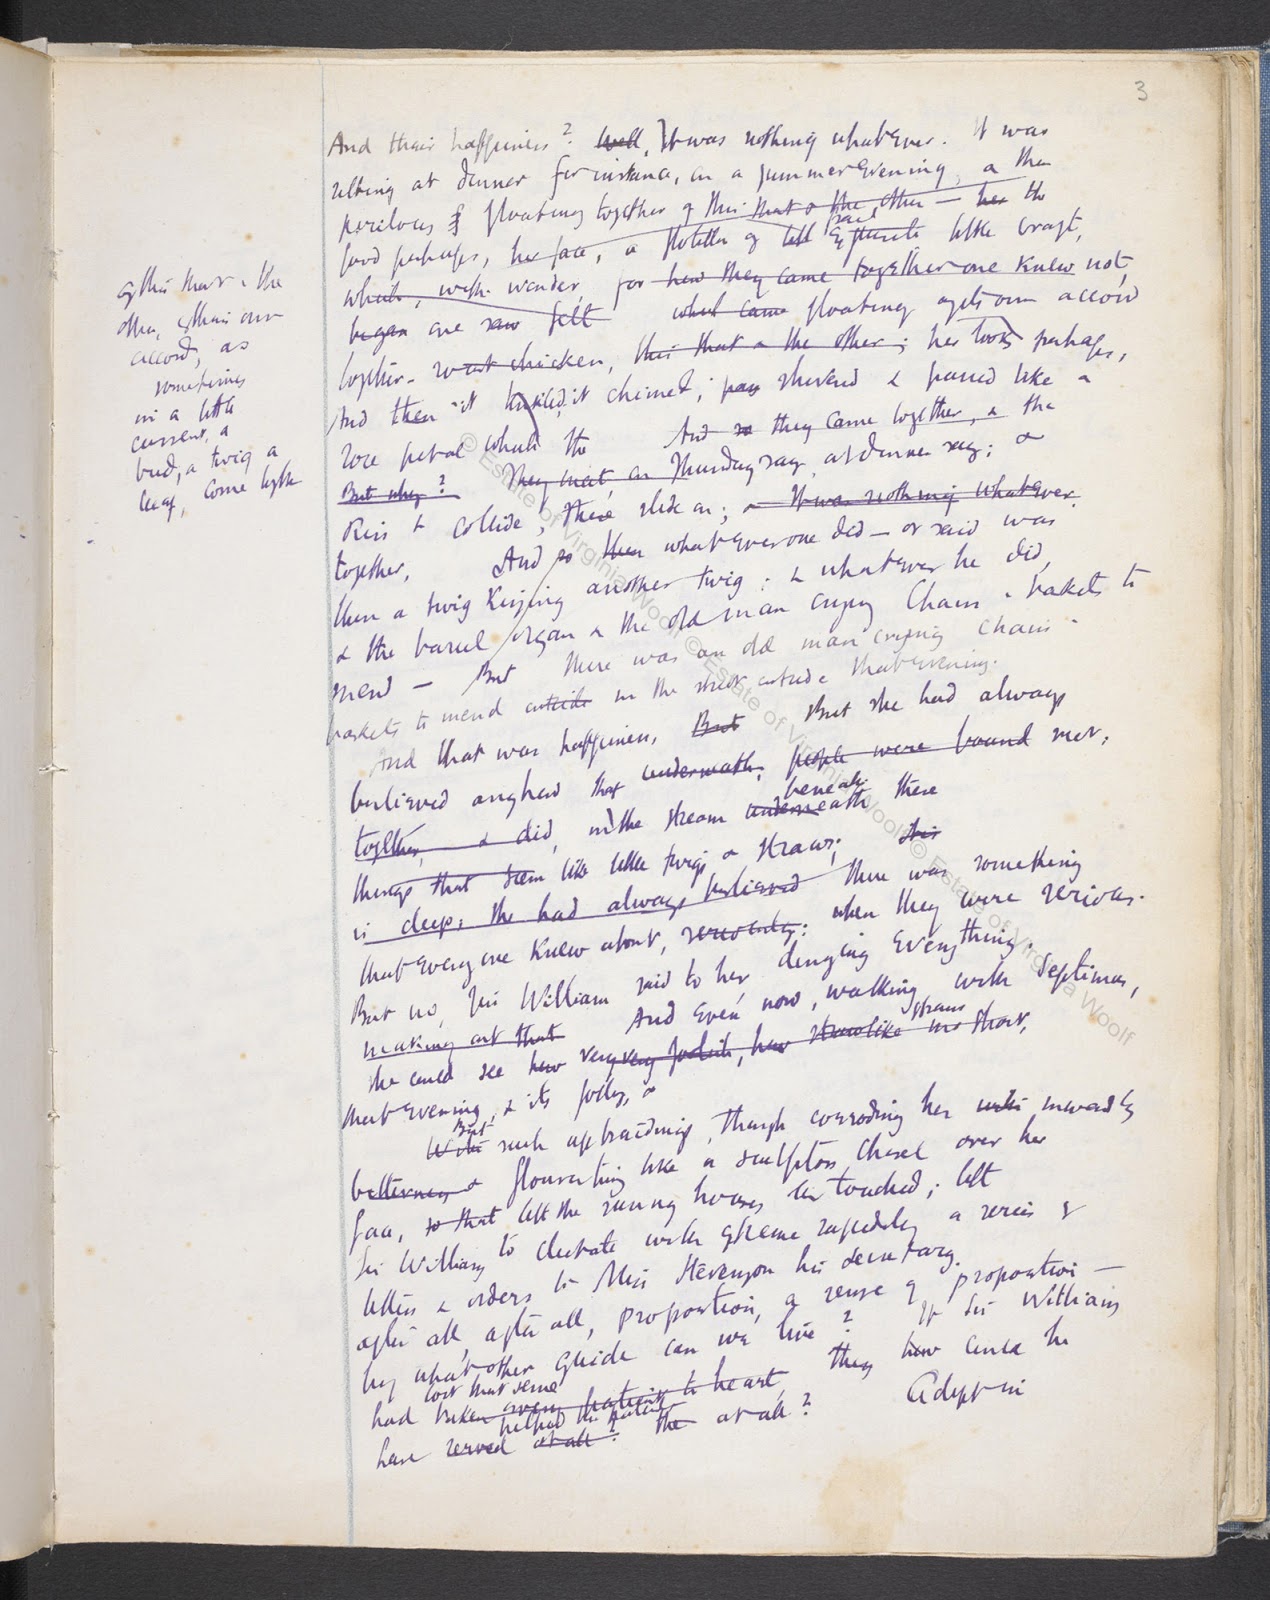 3
And their happiness? Well, It was nothing whatever. It was
sitting at dinner for instance, on a summer evening, & the
perilous floating together of this that & the other — her the
food perhaps, her face, a flotilla of frail separate little craft,
which, with wonder, for how they came together one knew not,
began one saw felt what came floating of its own accord
together. roast chicken, this that & the other; her looks perhaps,
And then it tinkled, it chimed; shivered & passed like a
rose petal which the And so they came together, & the
But why? They met, on Thursday say, at dinner say; &
kiss & collide, there slide on; & It was nothing whatever.
together, And so then whatever one did — or said was
then a twig kissing another twig: & whatever he did,
& the barrel organ & the old man crying Chairs & baskets to
mend — But There was an old man crying chairs &
baskets to mend outside in the street outside that evening.
And that was happiness, But But she had always
believed anyhow that underneath, people were bound met,
together, & did, in the stream underneath beneath these
things that seem like little twigs & straws;
is deep; she had always believed there was something
that everyone knew about, seriously: when they were serious.
But no, Sir William said to her denying everything.
making out that And even now, walking with Septimus,
she could see how very very foolish, how strawlike straws
that evening, & its folly, &
With But such upbraidings, though corroding her with inwardly
bitterness & flourishing like a sculptors chisel over her
face, so that left the running horses untouched; left
Sir William to dictate with extreme rapidity a series of
letters & orders to Miss Stevenson his secretary.
after all, after all, proportion, a sense of proportion —
by what other guide can we live? If Sir William
had taken lost that sense every patient to heart, they how could he
have served helped the patient at all? the at all? Adept in
of this that & the
other, of their own
accord, as
sometimes
in a little
current, a
bud, a twig a
leaf, come together
© Estate of Virginia Woolf © Estate of Virginia Woolf © Estate of Virginia Woolf